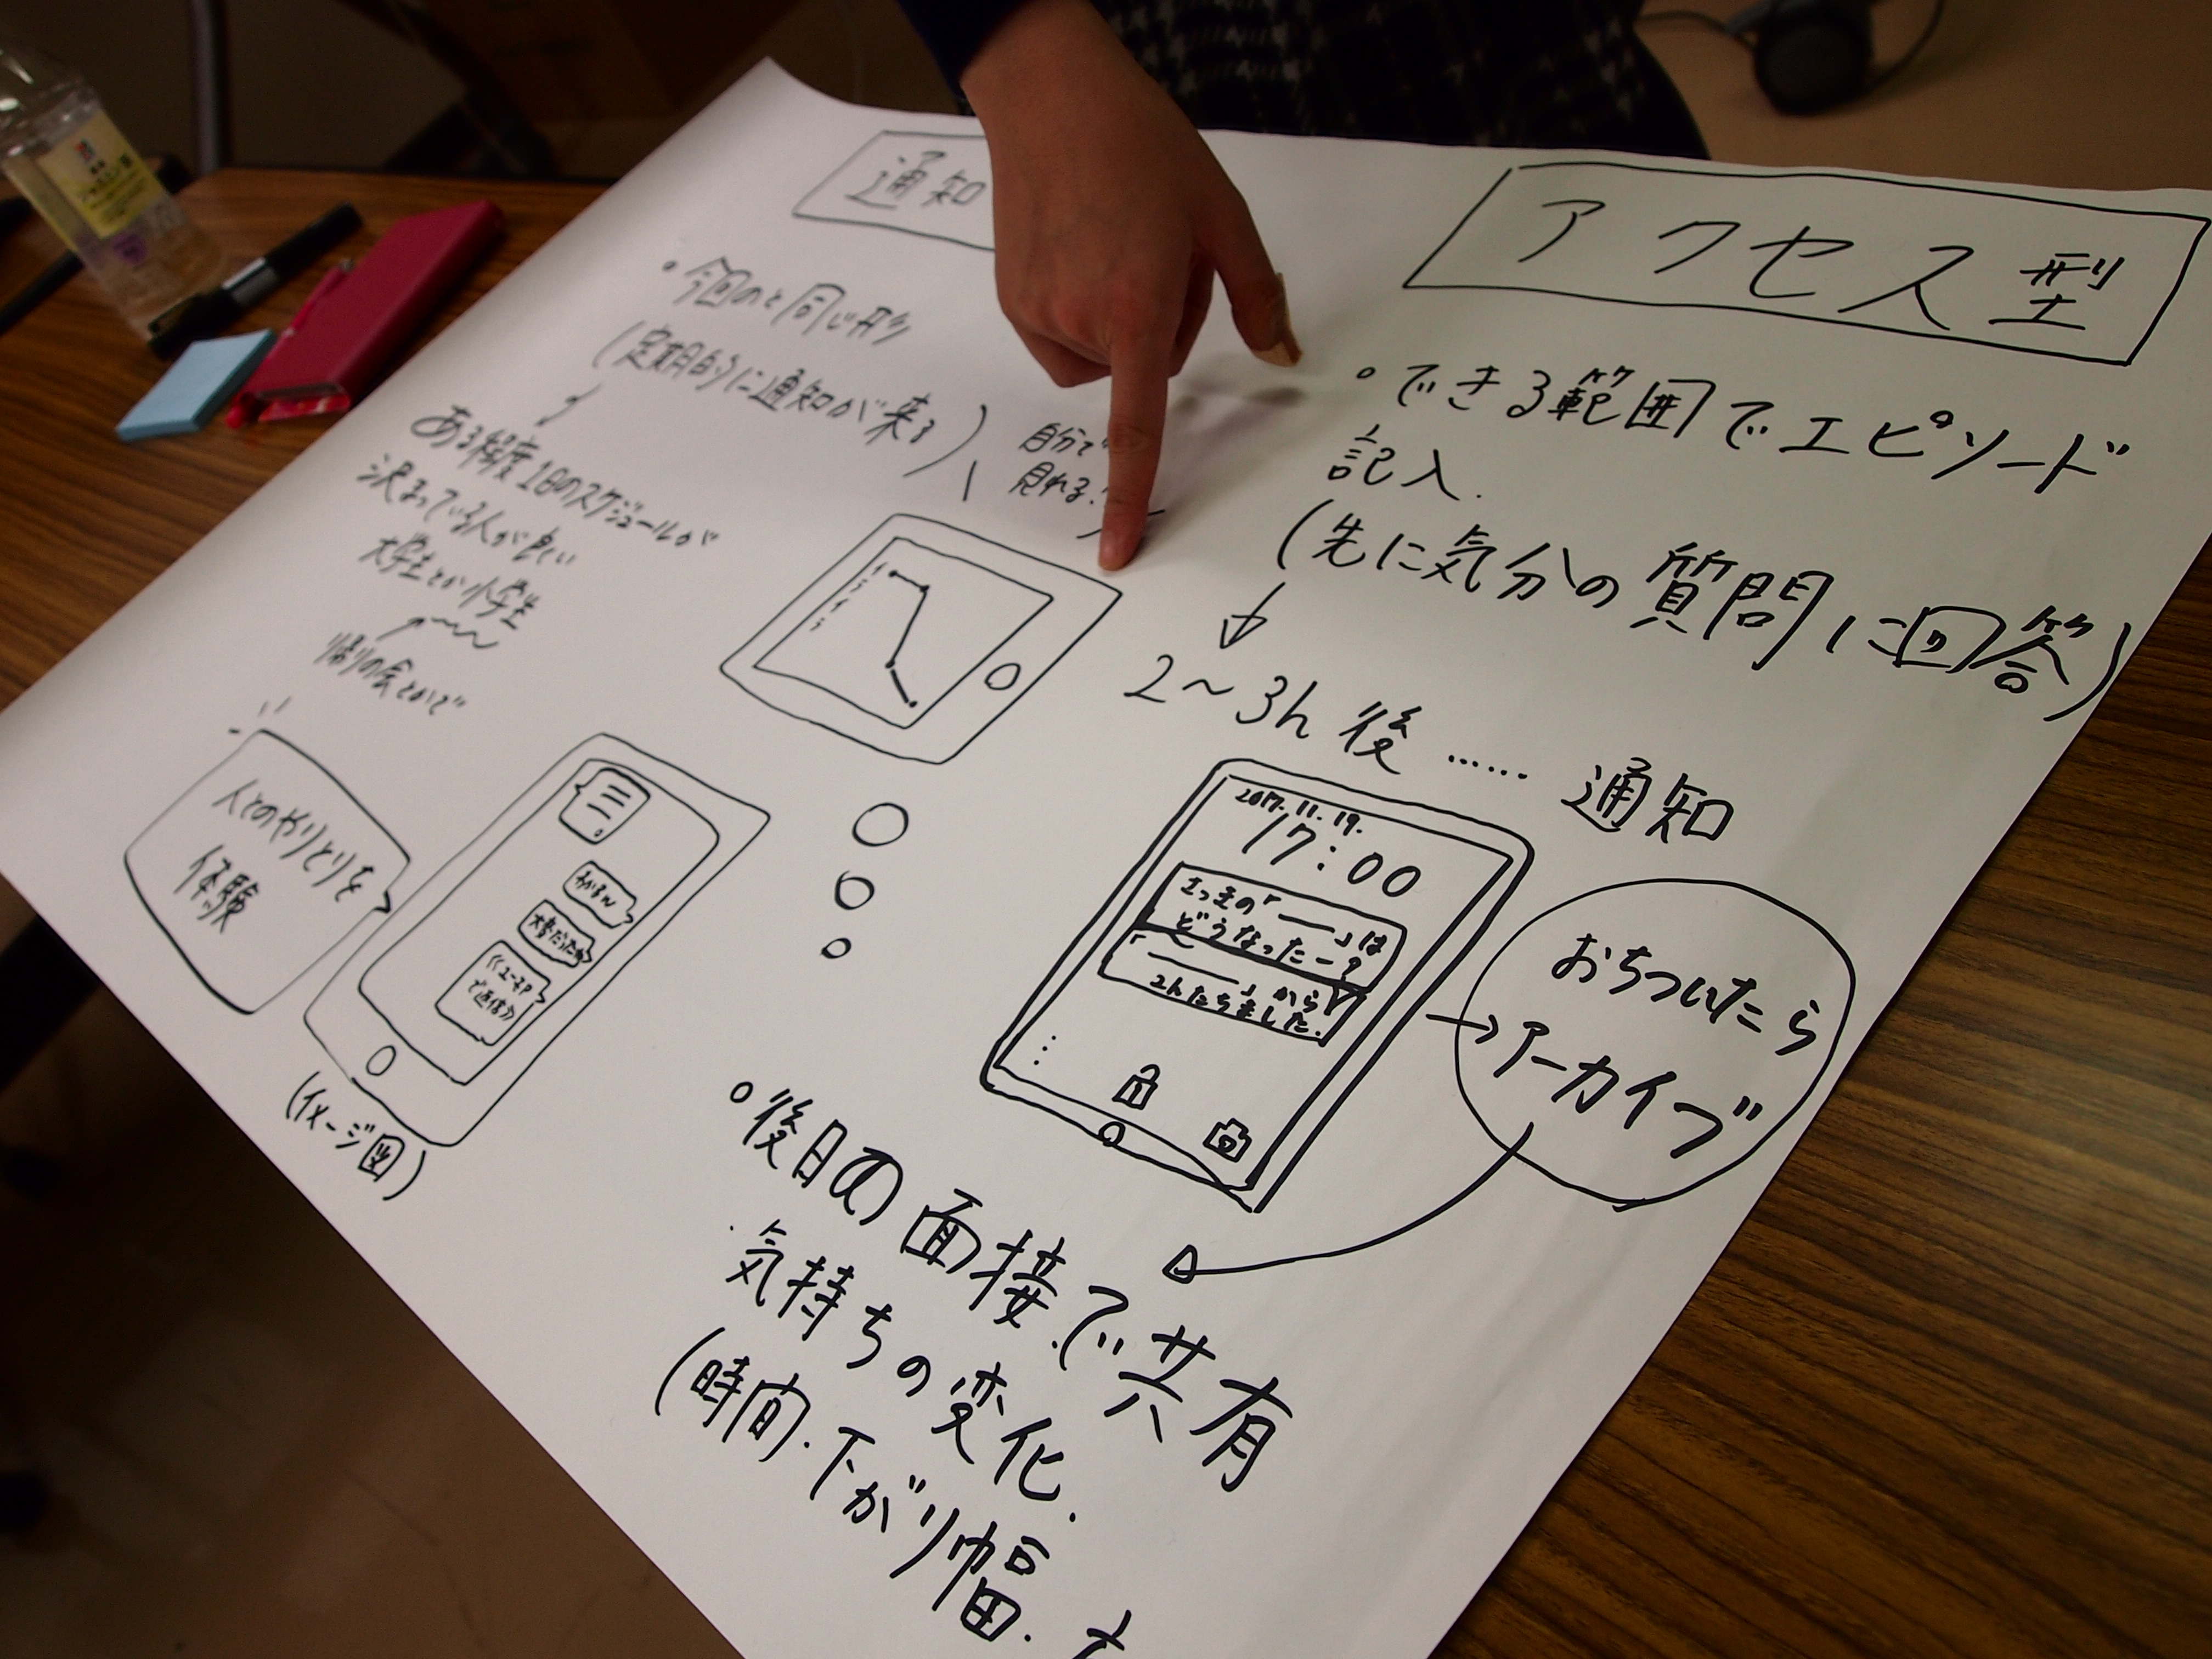 通知
・今回のと同じ形
(定期的に通知が来る)
ある程度1日のスケジュールが
決まっている人が良い
大学生とか小学生
帰りの会とかで
自分で
見れる
人とのやりとりを
体験
わかるw
大変だったね
《ユーモア
で返信》
(イメージ図)
アクセス型
・できる範囲でエピソード
記入.
(先に気分の質問に回答)
2~3h後……通知
2017.11.19.
17:00
さっきの「――」は
どうなったー?
「――」から
2hたちました.
おちついたら
アーカイブ
・後日の面接で共有
・気持ちの変化.
(時間.下がり幅.